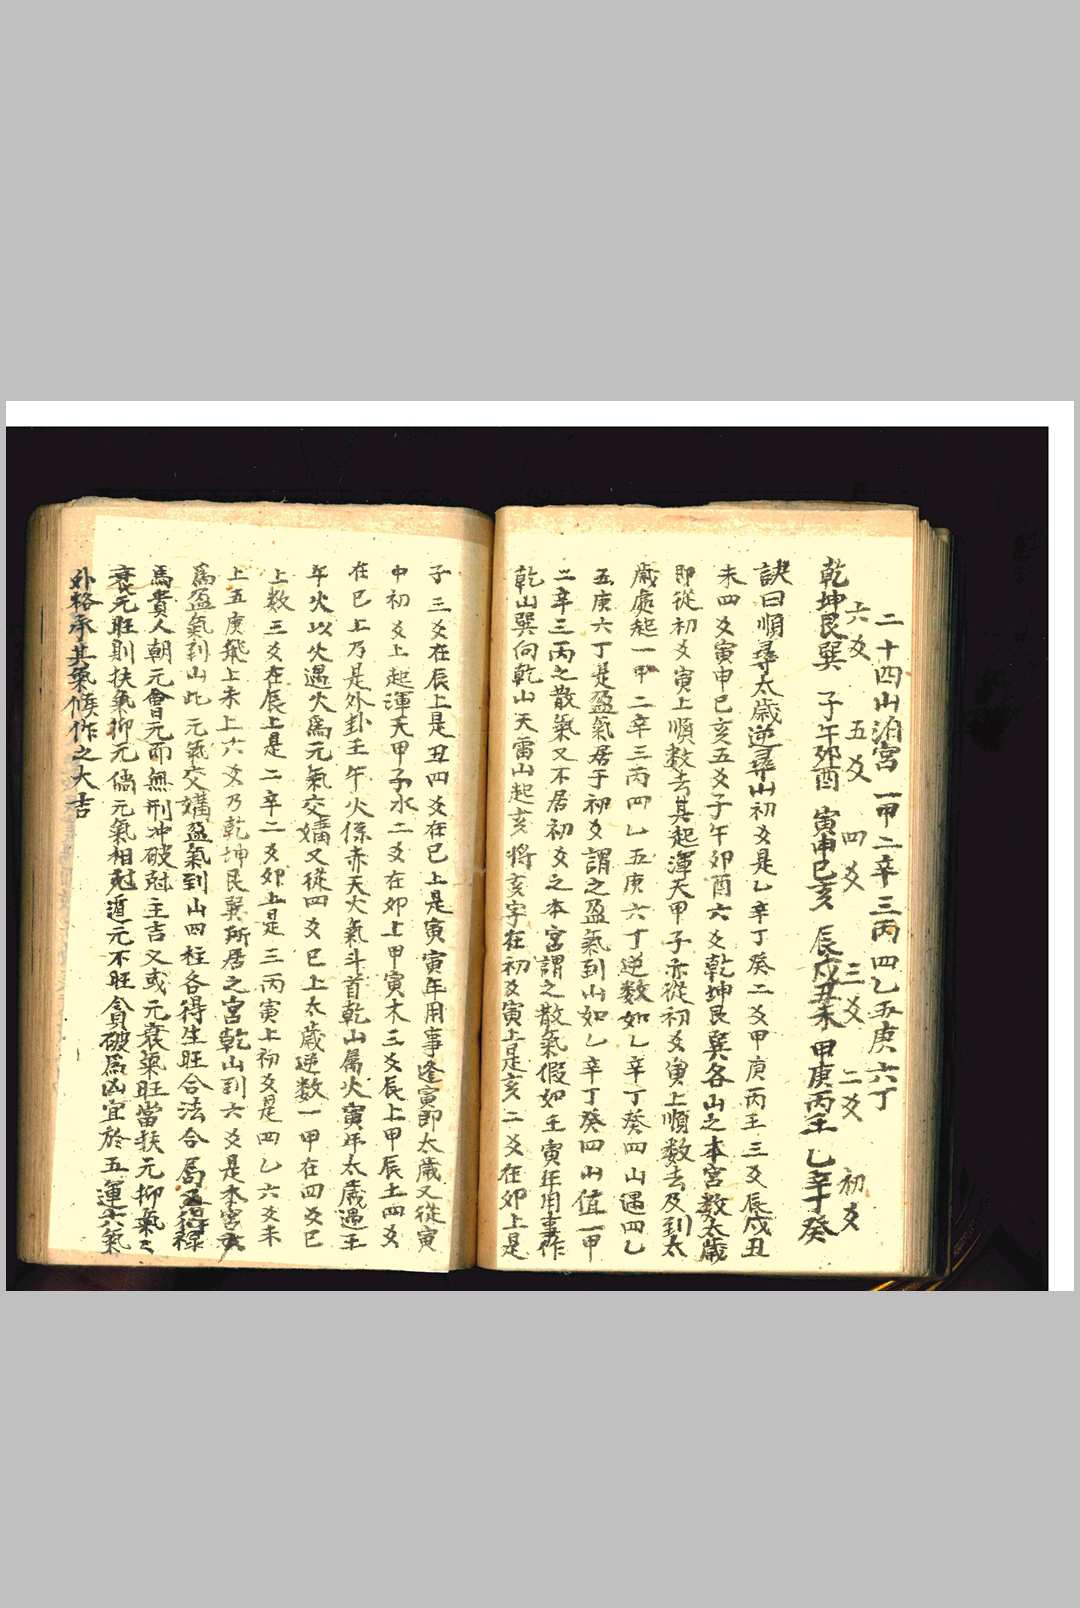 二十四山泊宮 一甲二辛三丙四乙五庚六丁
六爻 五爻 四爻 三爻 二爻 初爻
乾坤艮巽 子午卯酉 寅申巳亥 辰戌丑未 甲庚丙壬 乙辛丁癸
訣曰順尋太歲逆尋山初爻是乙辛丁癸二爻甲庚丙壬三爻辰戌丑
未四爻寅申巳亥五爻子午卯酉六爻乾坤艮巽各山之本宮数太歲
即從初爻寅上順数去其起渾天甲子亦從初爻寅上順数去及到太
歲處起一甲二辛三丙四乙五庚六丁逆数如乙辛丁癸四山遇四乙
五庚六丁是盈氣居于初爻謂之盈氣到山如乙辛丁癸四山值一甲
二辛三丙之散氣又不居初爻之本宮謂之散氣假如壬寅年用事作
乾山巽向乾山天雷山起亥将亥字在初爻寅上是亥二爻在卯上是
子三爻在辰上是丑四爻在巳上是寅寅年用事逢寅即太歲又從寅
中初爻上起渾天甲子水二爻在卯上甲寅木三爻辰上甲辰土四爻
在巳上乃是外卦壬午火係赤天火氣斗首乾山属火寅年太歲遇壬
年火以火遇火為元氣交媾又從四爻巳上太歲逆数一甲在四爻巳
上数三爻在辰上是二辛二爻卯上是三丙寅上初爻是四乙六爻未
上五庚飛上未上六爻乃乾坤艮巽所居之宮乾山到六爻是本宮
為盈氣到山此元氣交媾盈氣到山四柱各得生旺合法合局得祿
馬貴人朝元會元而無刑冲破尅主吉又或元衰氣旺當扶元抑氣氣
衰元旺則扶氣抑元倘元氣相尅道元不旺貪破為凶宜於五運六氣
外格承其氣候作之大吉